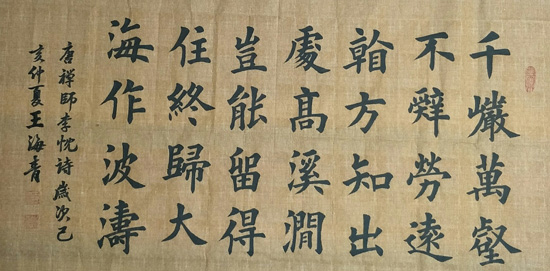 千巖萬壑
不辭勞遠
看方知出
處高溪澗
豈能留得
住終歸大
海作波濤
唐禪師李忱詩歲次己
亥仲夏王海青